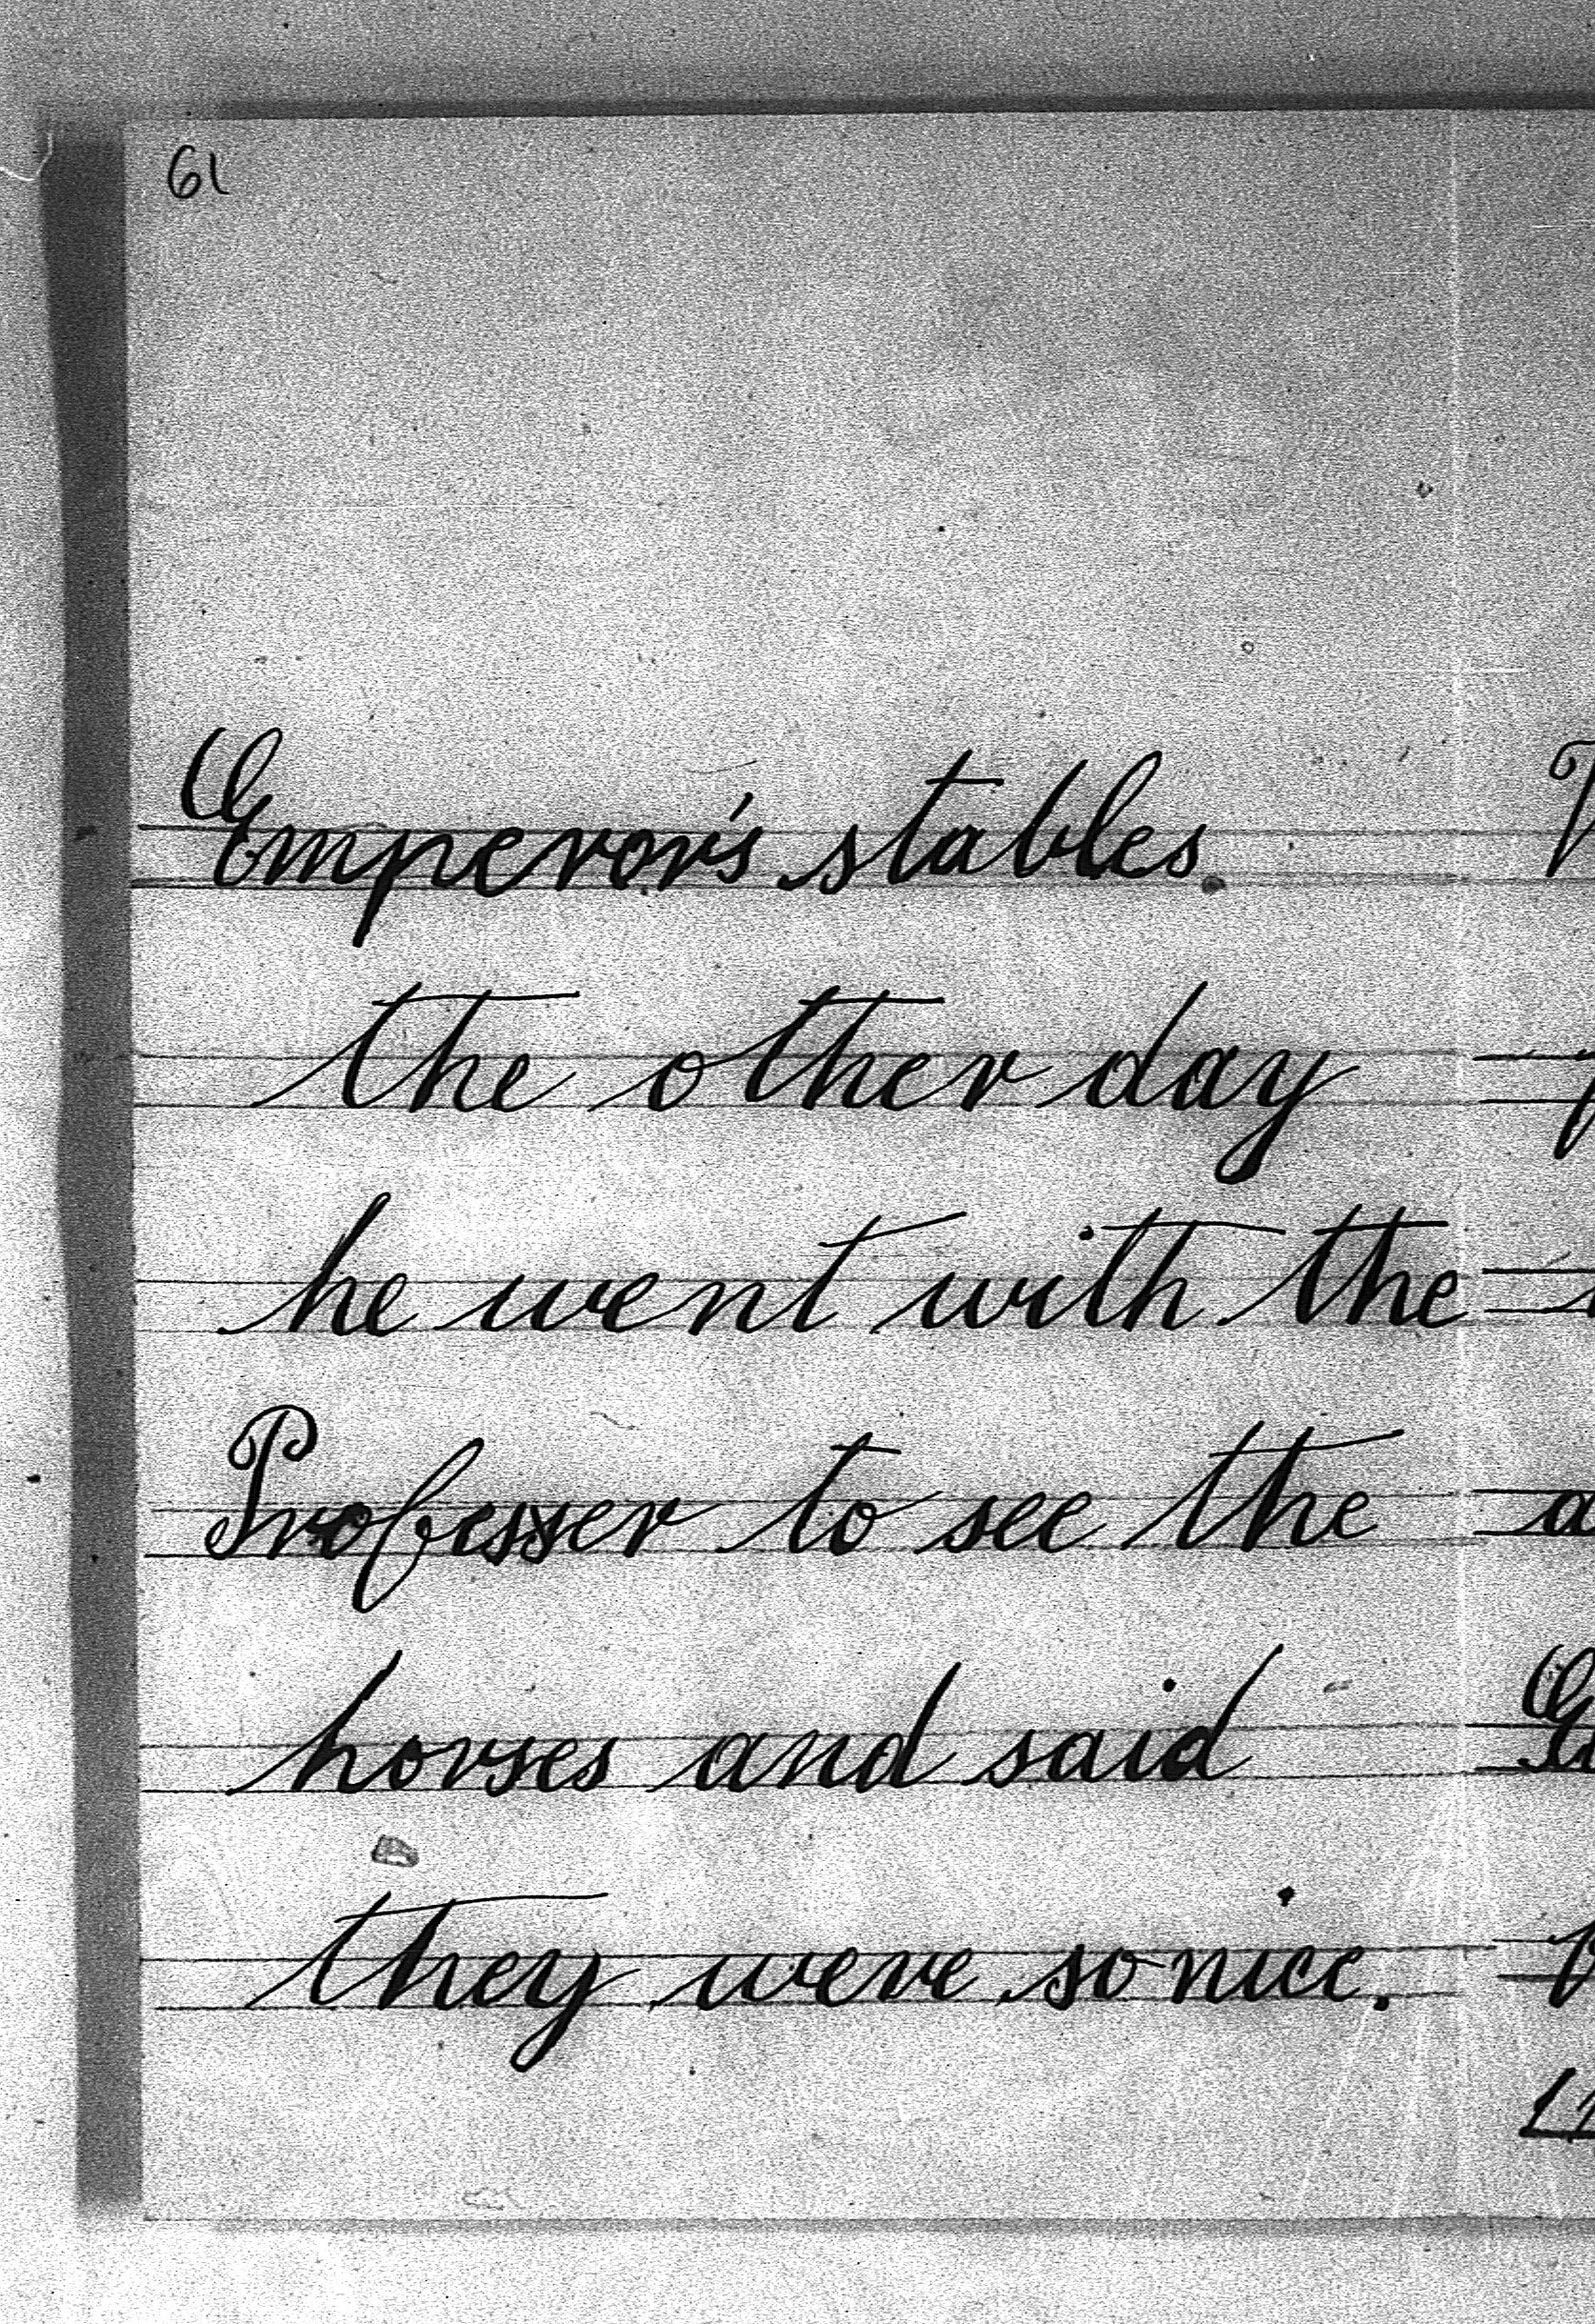 61
Emperor's stables.
the other day
he went with the
Professer to see the
horses and said
they were so nice.